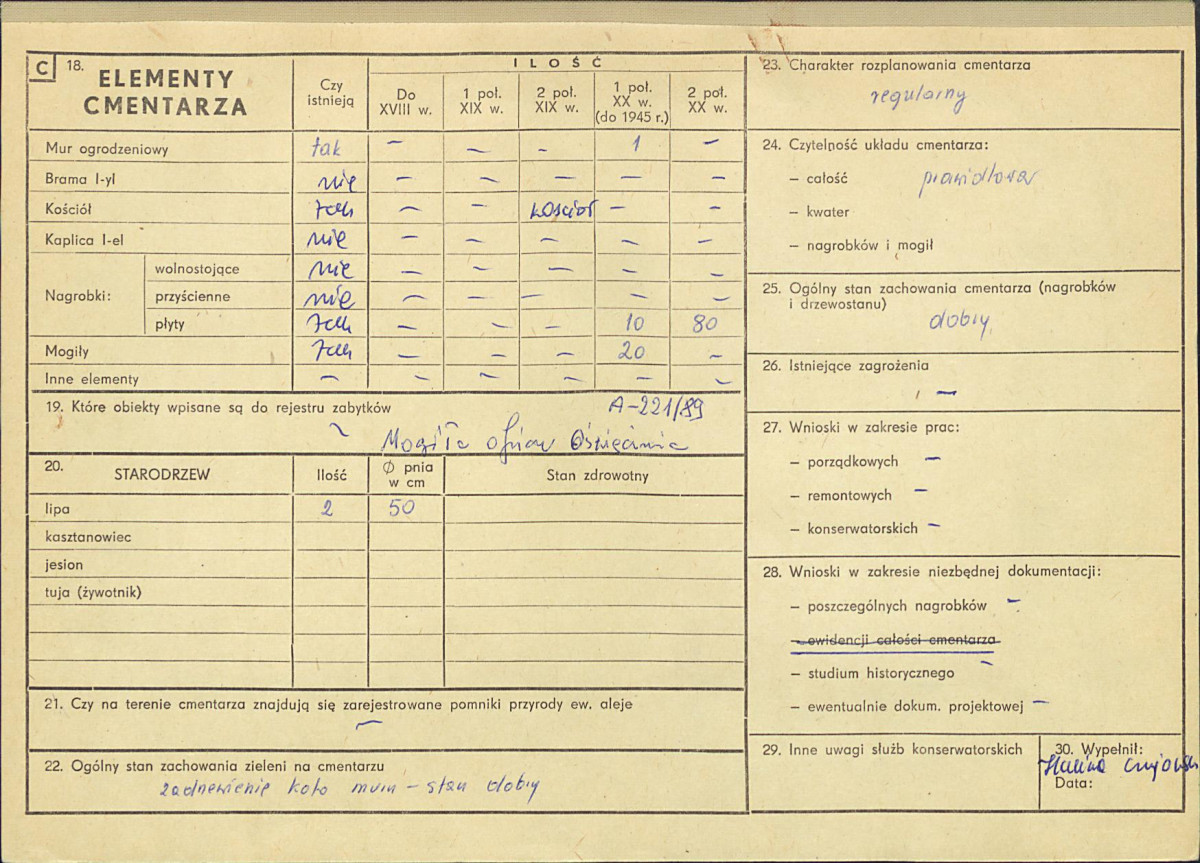 C 18. ELEMENTY CMENTARZA Czy istnieją I L O Ś Ć
Do XVIII w. 1 poł. XIX w. 2 poł. XIX w. 1 poł. XX w. (do 1945 r.) 2 poł. XX w.
Mur ogrodzeniowy tak – – – 1 –
Brama I-yl nie – – – – –
Kościół tak – – kościół – –
Kaplica I-el nie – – – – –
Nagrobki: wolnostojące nie – – – – –
przyścienne nie – – – – –
płyty tak – – – 10 80
Mogiły tak – – – 20 –
Inne elementy – – – – – –
19. Które obiekty wpisane są do rejestru zabytków A-221/89
– Mogiła ofiar Oświęcimia
20. STARODRZEW Ilość Ø pnia w cm Stan zdrowotny
lipa 2 50
kasztanowiec
jesion
tuja (żywotnik)
21. Czy na terenie cmentarza znajdują się zarejestrowane pomniki przyrody ew. aleje
–
22. Ogólny stan zachowania zieleni na cmentarzu
zadrzewienie koło muru – stan dobry
23. Charakter rozplanowania cmentarza
regularny
24. Czytelność układu cmentarza:
– całość prawidłowa
– kwater
– nagrobków i mogił
25. Ogólny stan zachowania cmentarza (nagrobków
i drzewostanu)
dobry
26. Istniejące zagrożenia
–
27. Wnioski w zakresie prac:
– porządkowych –
– remontowych –
– konserwatorskich –
28. Wnioski w zakresie niezbędnej dokumentacji:
– poszczególnych nagrobków –
– ewidencji całości cmentarza
– studium historycznego –
– ewentualnie dokum. projektowej –
29. Inne uwagi służb konserwatorskich
30. Wypełnił:
Halina
Data: